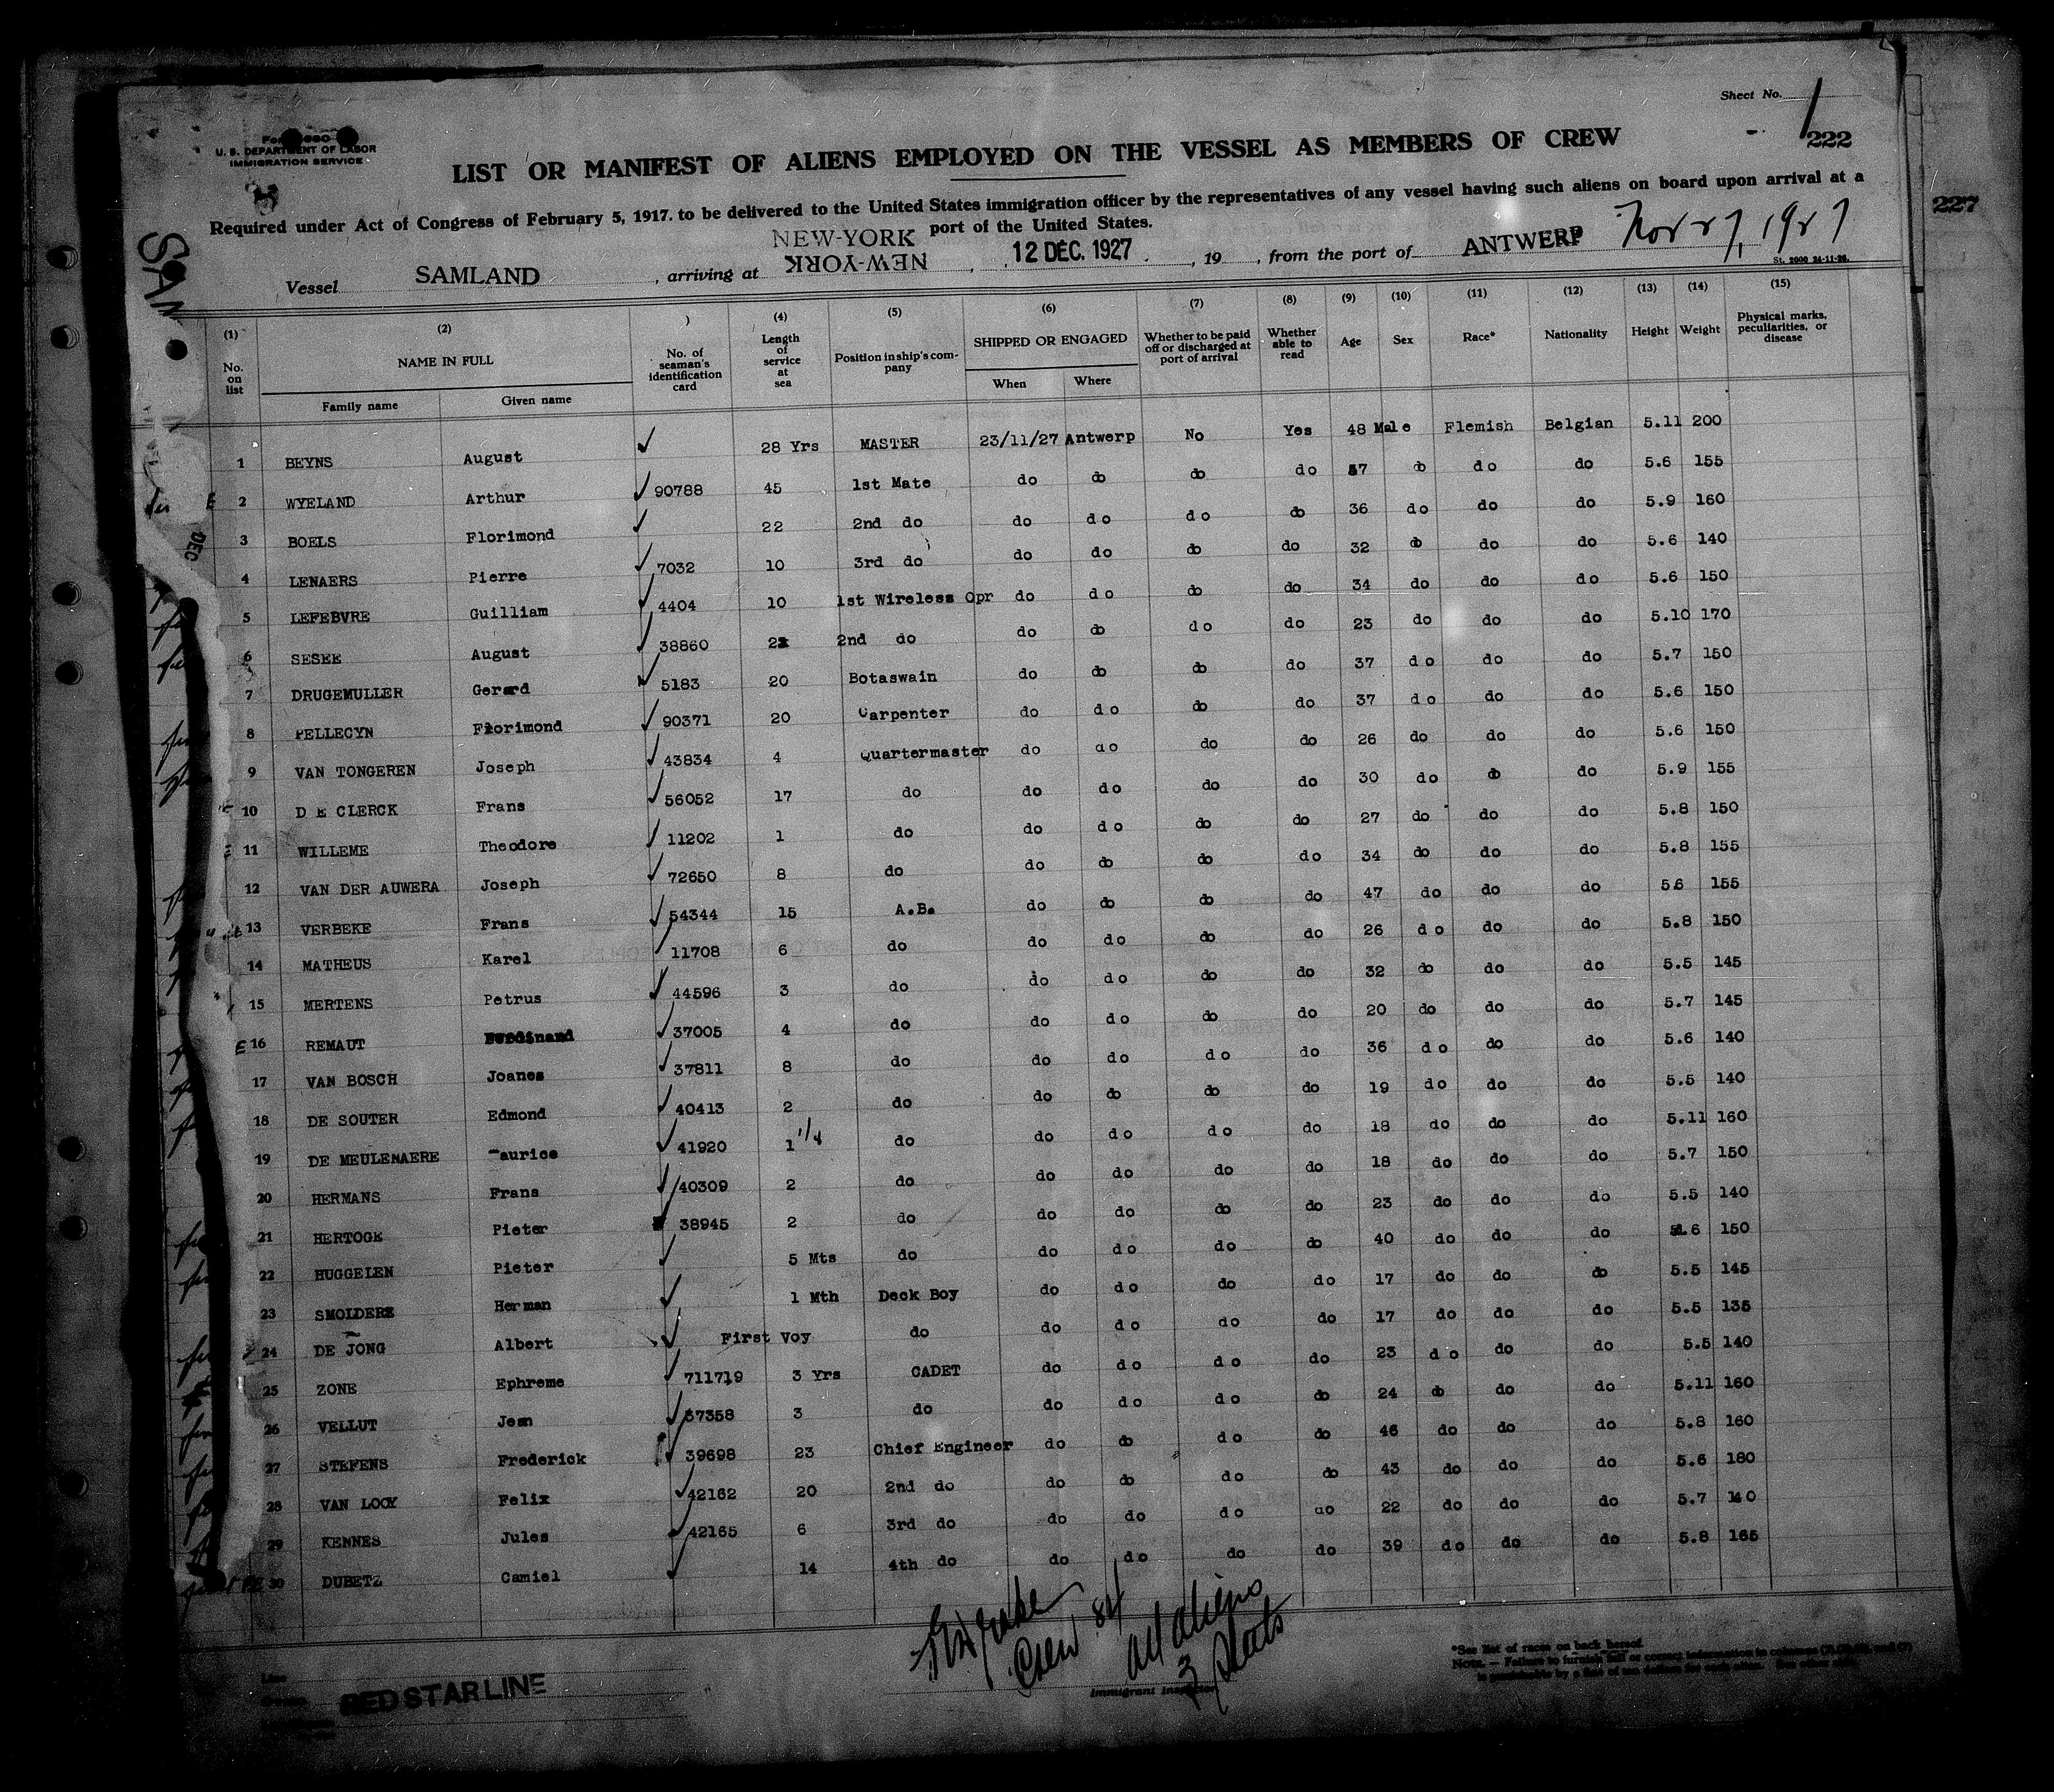 Sheet No. 1
222
227
U. S. DEPARTMENT OF LABOR
IMMIGRATION SERVICE
LIST OR MANIFEST OF ALIENS EMPLOYED ON THE VESSEL AS MEMBERS OF CREW
Required under Act of Congress of February 5, 1917. to be delivered to the United States immigration officer by the representatives of any vessel having such aliens on board upon arrival at a
port of the United States.
NEW-YORK
Vessel SAMLAND , arriving at NEW-YORK , 12 DEC. 1927 , 19 , from the port of ANTWERP Nov 27, 1927
St. 2000 24-11-26.
SAN
DEC
(1) (2) ) (4) (5) (6) (7) (8) (9) (10) (11) (12) (13) (14) (15)
No. on list NAME IN FULL Family name Given name No. of seaman's identification card Length of service at sea Position in ship's company SHIPPED OR ENGAGED When Where Whether to be paid off or discharged at port of arrival Whether able to read Age Sex Race* Nationality Height Weight Physical marks, peculiarities, or disease
1 BEYNS August 28 Yrs MASTER 23/11/27 Antwerp No Yes 48 Male Flemish Belgian 5.11 200
2 WYELAND Arthur 90788 45 1st Mate do do do do 57 do do do 5.6 155
3 BOELS Florimond 22 2nd do do do do do 36 do do do 5.9 160
4 LENAERS Pierre 7032 10 3rd do do do do do 32 do do do 5.6 140
5 LEFEBVRE Guilliam 4404 10 1st Wireless Opr do do do do 34 do do do 5.6 150
6 SESEE August 38860 2nd do do do do do 23 do do do 5.10 170
7 DRUGEMULLER Gerard 5183 20 Botaswain do do do do 37 do do do 5.7 150
8 PELLECYN Florimond 90371 20 Carpenter do do do do 37 do do do 5.6 150
9 VAN TONGEREN Joseph 43834 4 Quartermaster do do do do 26 do do do 5.6 150
10 D E CLERCK Frans 56052 17 do do do do do 30 do do do 5.9 155
11 WILLEME Theodore 11202 1 do do do do do 27 do do do 5.8 150
12 VAN DER AUWERA Joseph 72650 8 do do do do do 34 do do do 5.8 155
13 VERBEKE Frans 54344 15 A.B. do do do do 47 do do do 5.6 155
14 MATHEUS Karel 11708 6 do do do do do 26 do do do 5.8 150
15 MERTENS Petrus 44596 3 do do do do do 32 do do do 5.5 145
16 REMAUT Ferdinand 37005 4 do do do do do 20 do do do 5.7 145
17 VAN BOSCH Joanes 37811 8 do do do do do 36 do do do 5.6 140
18 DE SOUTER Edmond 40413 2 do do do do do 19 do do do 5.5 140
19 DE MEULENAERE Maurice 41920 1 1/4 do do do do do 18 do do do 5.11 160
20 HERMANS Frans 40309 2 do do do do do 18 do do do 5.7 150
21 HERTOGE Pieter 38945 2 do do do do do 23 do do do 5.5 140
22 HUGGELEN Pieter 5 Mts do do do do do 40 do do do 5.6 150
23 SMOLDERS Herman 1 Mth Deck Boy do do do do 17 do do do 5.5 145
24 DE JONG Albert First Voy do do do do do 17 do do do 5.5 135
25 ZONE Ephreme 711719 3 Yrs CADET do do do do 23 do do do 5.5 140
26 VELLUT Jean 37358 3 do do do do do 24 do do do 5.11 160
27 STEFENS Frederick 39698 23 Chief Engineer do do do do 46 do do do 5.8 160
28 VAN LOOY Felix 42162 20 2nd do do do do do 43 do do do 5.6 180
29 KENNES Jules 42165 6 3rd do do do do do 22 do do do 5.7 140
30 DUBETZ Camiel 14 4th do do do do do 39 do do do 5.8 165
Crew 84
all aliens
3 sheets
Line
RED STAR LINE
Immigrant Inspector
*See list of races on back hereof.